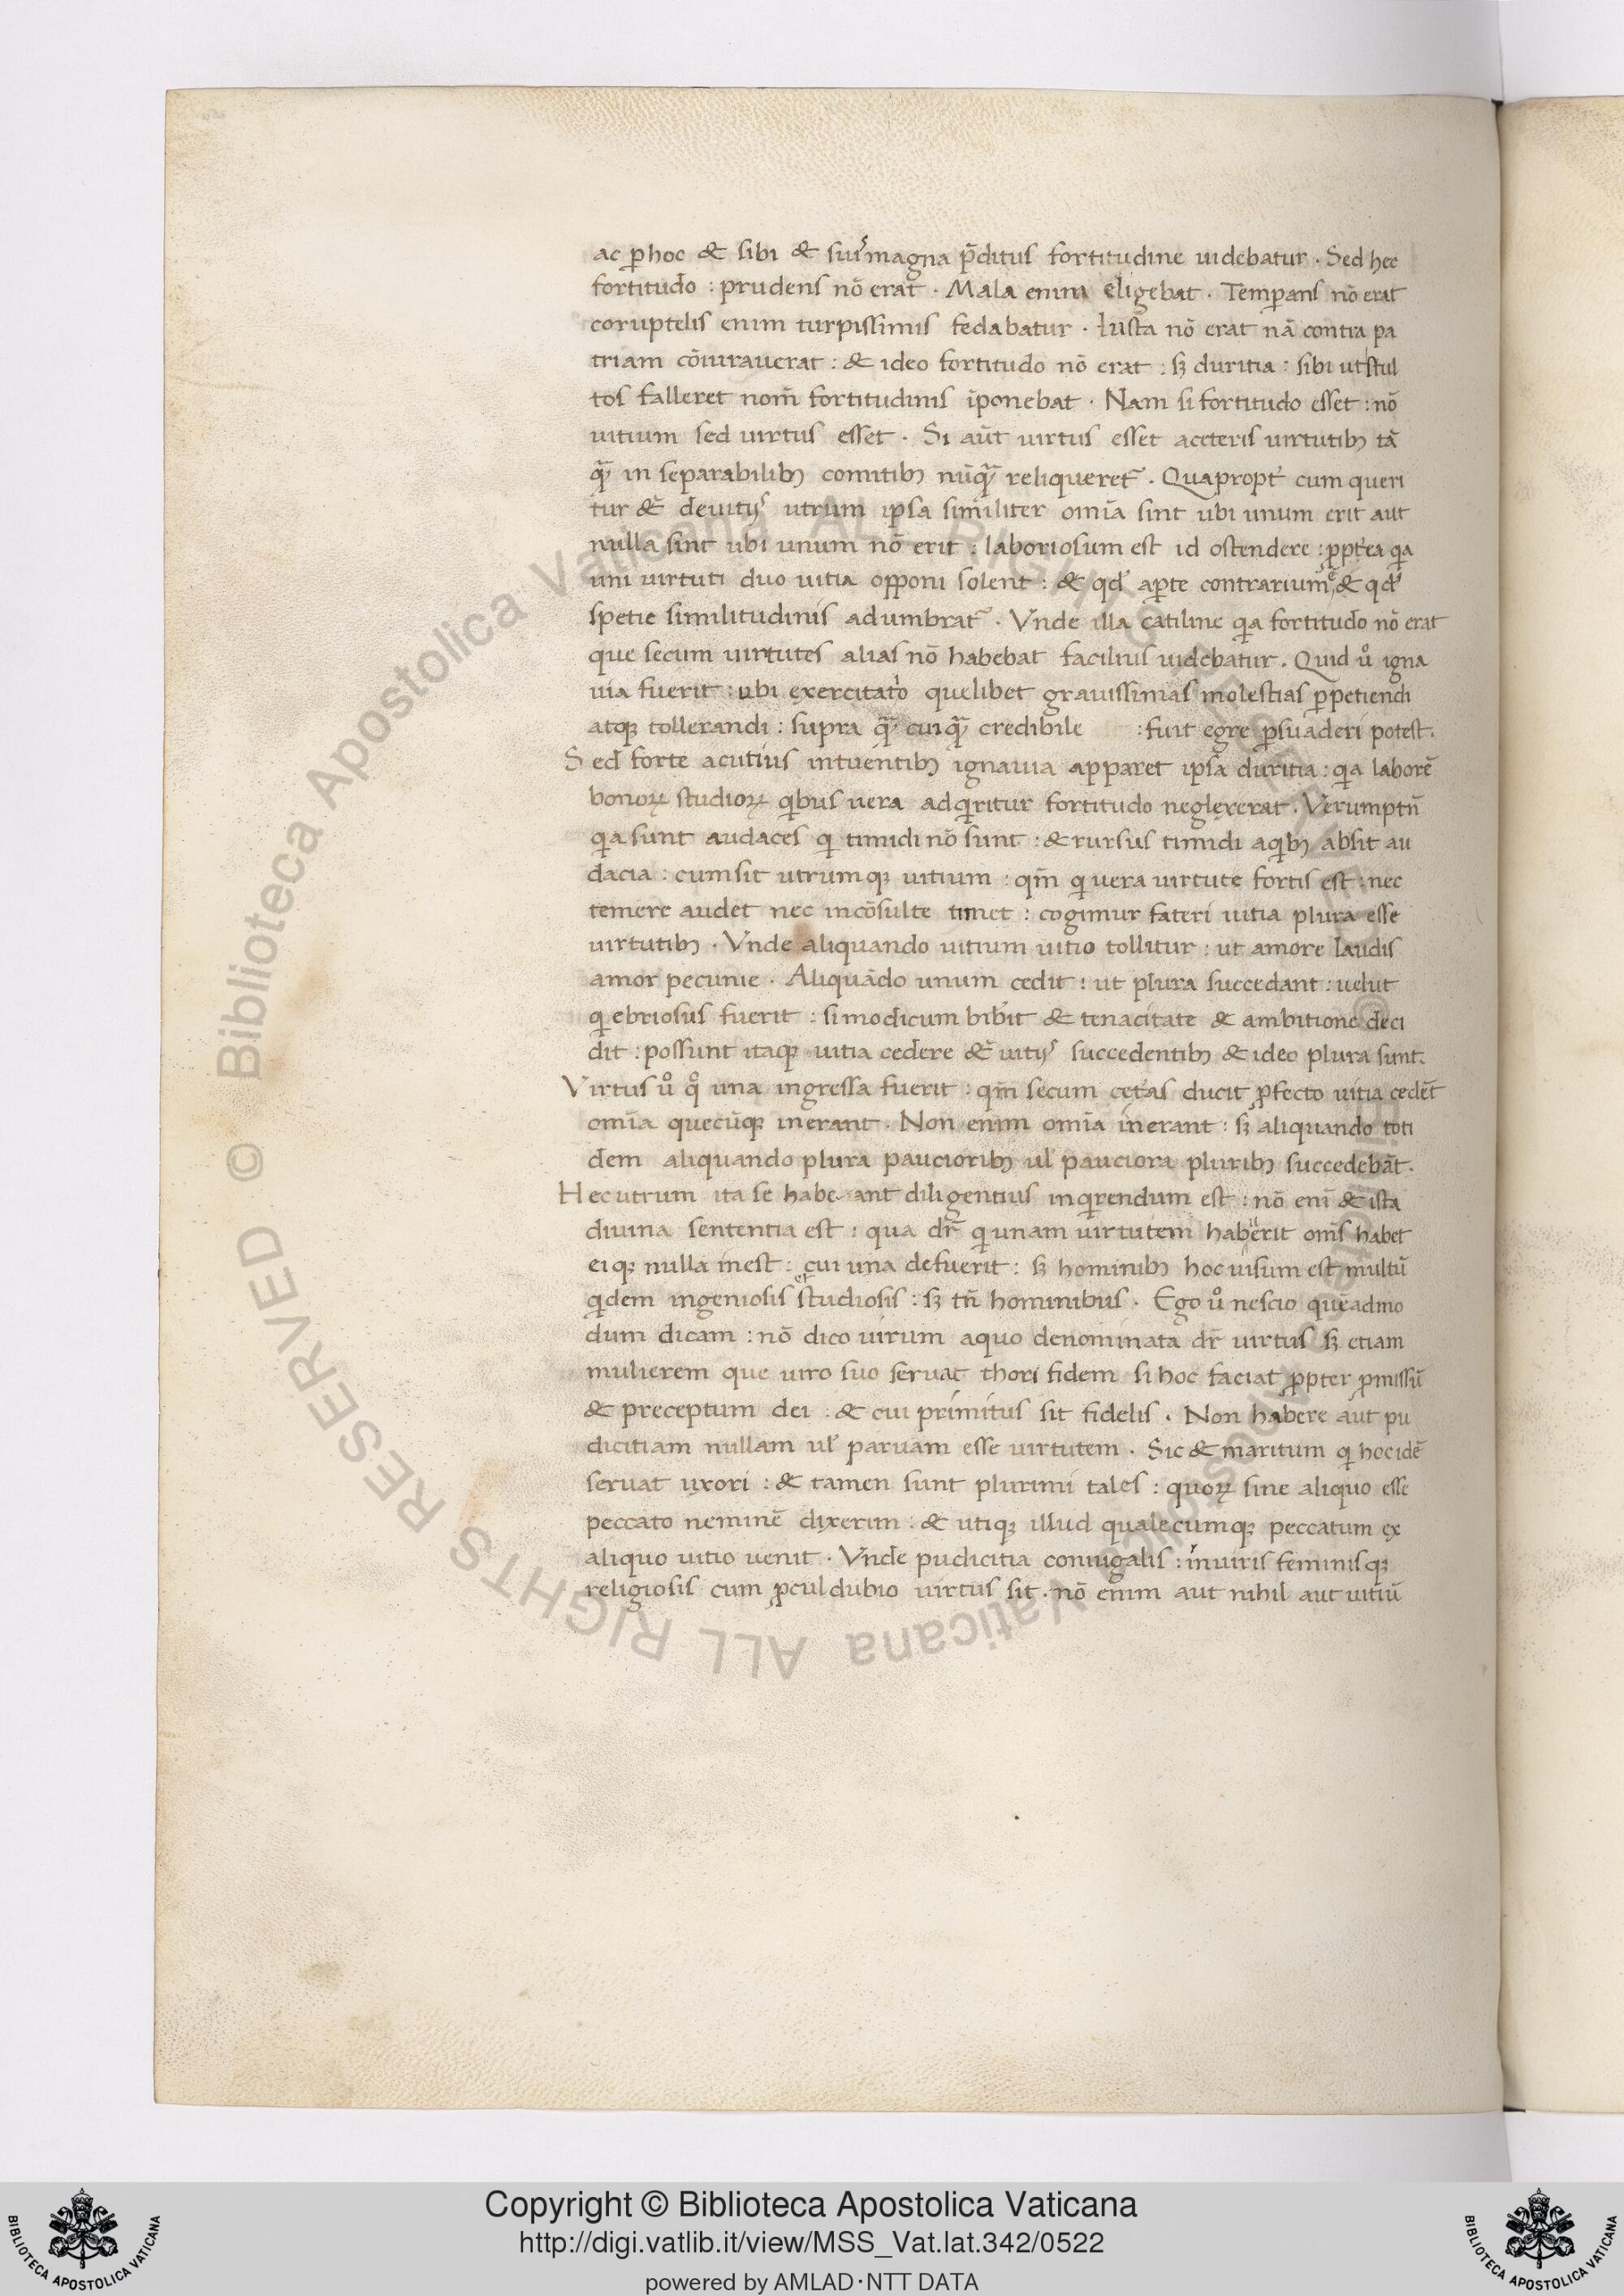 ac ꝑhoc & sibi & suiſ magna p̄ditus fortitudine uidebatur · Sed hec
fortitudo : prudens nō erat · Mala enim eligebat · Temꝑans nō erat
coruptelis enim turpissimis fedabatur · Iusta nō erat nā contra pa
triam cōiurauerat : & ideo fortitudo nō erat : sꝫ duritia : sibi ut stul
tos falleret nom̄ fortitudinis īponebat · Nam si fortitudo esset : nō
uitium sed uirtus esset · Si aūt uirtus esset aceteris uirtutibꝫ tā
qᷓ in separabilibꝫ comitibꝫ nūqᷓ reliqueretᷣ · Quapropt̓ cum queri
tur &̄ deuitijs utrum ipsa similiter omīa sint ubi unum erit aut
nulla sint ubi unum nō erit : laboriosum est id ostendere : ꝓpt̓ea qͥa
uni uirtuti duo uitia opponi solent : & qd̓ aꝑte contrarium ē & qd̓
spetie similitudinis adumbratᷣ · Vnde illa catiline qͥa fortitudo nō erat
que secum uirtutes alias nō habebat facilius uidebatur . Quid uͦ igna
uia fuerit : ubi exercitat̓o quelibet grauissimas molestias ꝑpetiendi
atqꝫ tollerandi : supra qᷓ cuiqᷓ credibile : fuit egre ꝑsuaderi potest .
Sed forte acutius intuentibꝫ ignauia apparet ipsa duritia : qͥa laborē
bonoꝝ studioꝝ qͥbus uera adqͥritur fortitudo neglexerat . Verumptn̄
qͥa sunt audaces qͥ timidi nō sunt : & rursus timidi aqͥbꝫ absit au
dacia : cum sit utrumqꝫ uitium : qm̄ qͥ uera uirtute fortis est : nec
temere audet nec incōsulte timet : cogimur fateri uitia plura esse
uirtutibꝫ · Vnde aliquando uitium uitio tollitur : ut amore laudis
amor pecunie · Aliquādo unum cedit : ut plura succedant : uelut
qͥ ebriosus fuerit : si modicum bib̓it & tenacitate & ambitione deci
dit : possunt itaqꝫ uitia cedere &̄ uitijs succedentibꝫ & ideo plura sunt.
Virtus uͦ qͦ una ingressa fuerit : qm̄ secum cet̓as ducit ꝓfecto uitia cedēt
omīa quecūqꝫ inerant · Non enim omīa inerant : sꝫ aliquando toti
dem aliquando plura paucioribꝫ ul̓ pauciora pluribꝫ succedebāt .
Hec utrum ita se habe ant diligentius inqͥrendum est : nō enī & ista
diuina sententia est : qua dr̄ qͥ unam uirtutem habuerit om̄s habet
eiqꝫ nulla inest : cui una defuerit : sꝫ hominibꝫ hoc uisum est multū
qͥdem ingeniosis et studiosis : sꝫ tn̄ hominibus · Ego uͦ nescio quēadmo
dum dicam : nō dico uirum aquo denominata dr̄ uirtus sꝫ etiam
mulierem que uiro suo seruat thori fidem si hoc faciat ꝓpter ꝓmissū
& preceptum dei : & cui primitus sit fidelis · Non habere aut pu
dicitiam nullam ul̓ paruam esse uirtutem · Sic & maritum qͥ hoc idē
seruat uxori : & tamen sunt plurimi tales : quoꝝ sine aliquo esse
peccato neminē dixerim : & utiqꝫ illud qualecumqꝫ peccatum ex
aliquo uitio uenit · Vnde pudicitia coniugalis : in uiris feminisqꝫ
religiosis cum ꝓcul dubio uirtus sit · nō enim aut nihil aut uitiū
© Biblioteca Apostolica Vaticana ALL RIGHTS RESERVED
Copyright © Biblioteca Apostolica Vaticana
http://digi.vatlib.it/view/MSS_Vat.lat.342/0522
powered by AMLAD·NTT DATA
BIBLIOTECA APOSTOLICA VATICANA
BIBLIOTECA APOSTOLICA VATICANA